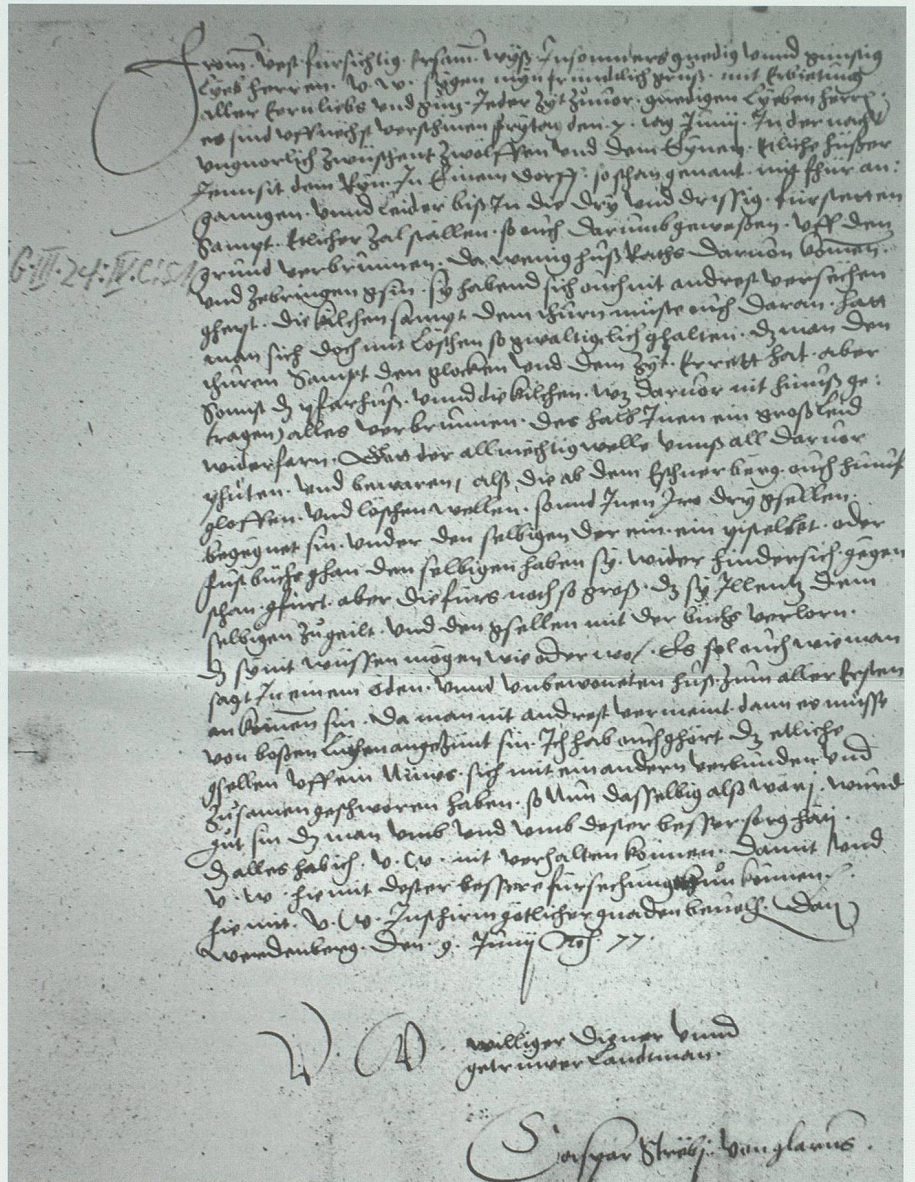 From̄, Vest, fürsichtig, Ersam̄, wyß, Insonders gnedig vnnd günstig
Lyeb Herren. V. W. sygen myn fründtlich gruß. mit Erbietung
aller Eern liebs vnd guts Jeder Zyt Zuuor. gnedigen Lyeben herrn,
es sind vff nechst verschinen frytag den 7. tag Junij. In der nacht
vngnorlich Zwüschent Zwölffen vnd dem Eynen. Etliche hüßer
Jennsit dem Ryn. In Einem dorff: so schan genant. mit fhür an:
ganngen. vnnd leider biß In die dry vnd drissig. fürstetten
Sampt. Etlicher Zal ställen. so ouch darumb geweßen. vff den
grund verbrunnen. da wenig huß Raths daruon komen.
G. III. 24: IV. Cl.
und Zebringen gsin. sy habend sich ouch nit andrest versechen
ghept. die kilchen sampt dem thurn müste ouch daran. hatt
man sich doch mit Löschen so gwaltigclich ghalten. dz man den
thuren Sampt den glocken vnd dem Zyt. Errett hat. aber
Sonnst dz pfarhuß. vnnd die kilchen. wz daruor nit hinuß ge:
tragen) alles verbrunnen. des halb Inen ein groß Leid
widerfarn. Gott der allmechtig welle vnnß all daruor
phüten. vnd bewaren, alß die ab dem Eschnerberg. ouch hinuf
gloffen. vnd löschen wellen. sonnd Inen Jro dry gsellen.
begegnet sin. vnder den selbigen der ein. ein oder
fustbüchs ghan den selbigen haben sy. wider hindersich gegen
schan. gfürt. aber die fürs noch so groß. dz sy Jllentz dem
selbigen Zugeilt. vnd den gsellen mit der büchs verlorn.
dz sy nit wüssen mögen wie oder wo. Es sol ouch wie man
sagt In einem öden. vnnd vnbewoneten huß Zum aller Ersten
an komen sin. da man nit andrest vermeint. dann es müsse
von boßen Lüthen angeZünt sin. Ich hab ouch ghört. dz etliche
gsellen vff ein Nüws. sich mit einandern verbunden vnd
Zusamen geschworen haben. so Nun dasselbig alß wärj. wurd
gut sin dz man vmb vnd vmb dester besser sorg hätj.
dz alles hab ich. V. W. nit verhalten können. damit vnd
V. W. hiemit dester bessere fürsechung thun können.
hiemit. V. W. In schirm götlicher gnaden beuolh. Datz
Werdenberg. den. 9. Junij 77.
V. W. williger diener vnnd
getrüwer Landtman.
Caspar Strebj. von glarus.